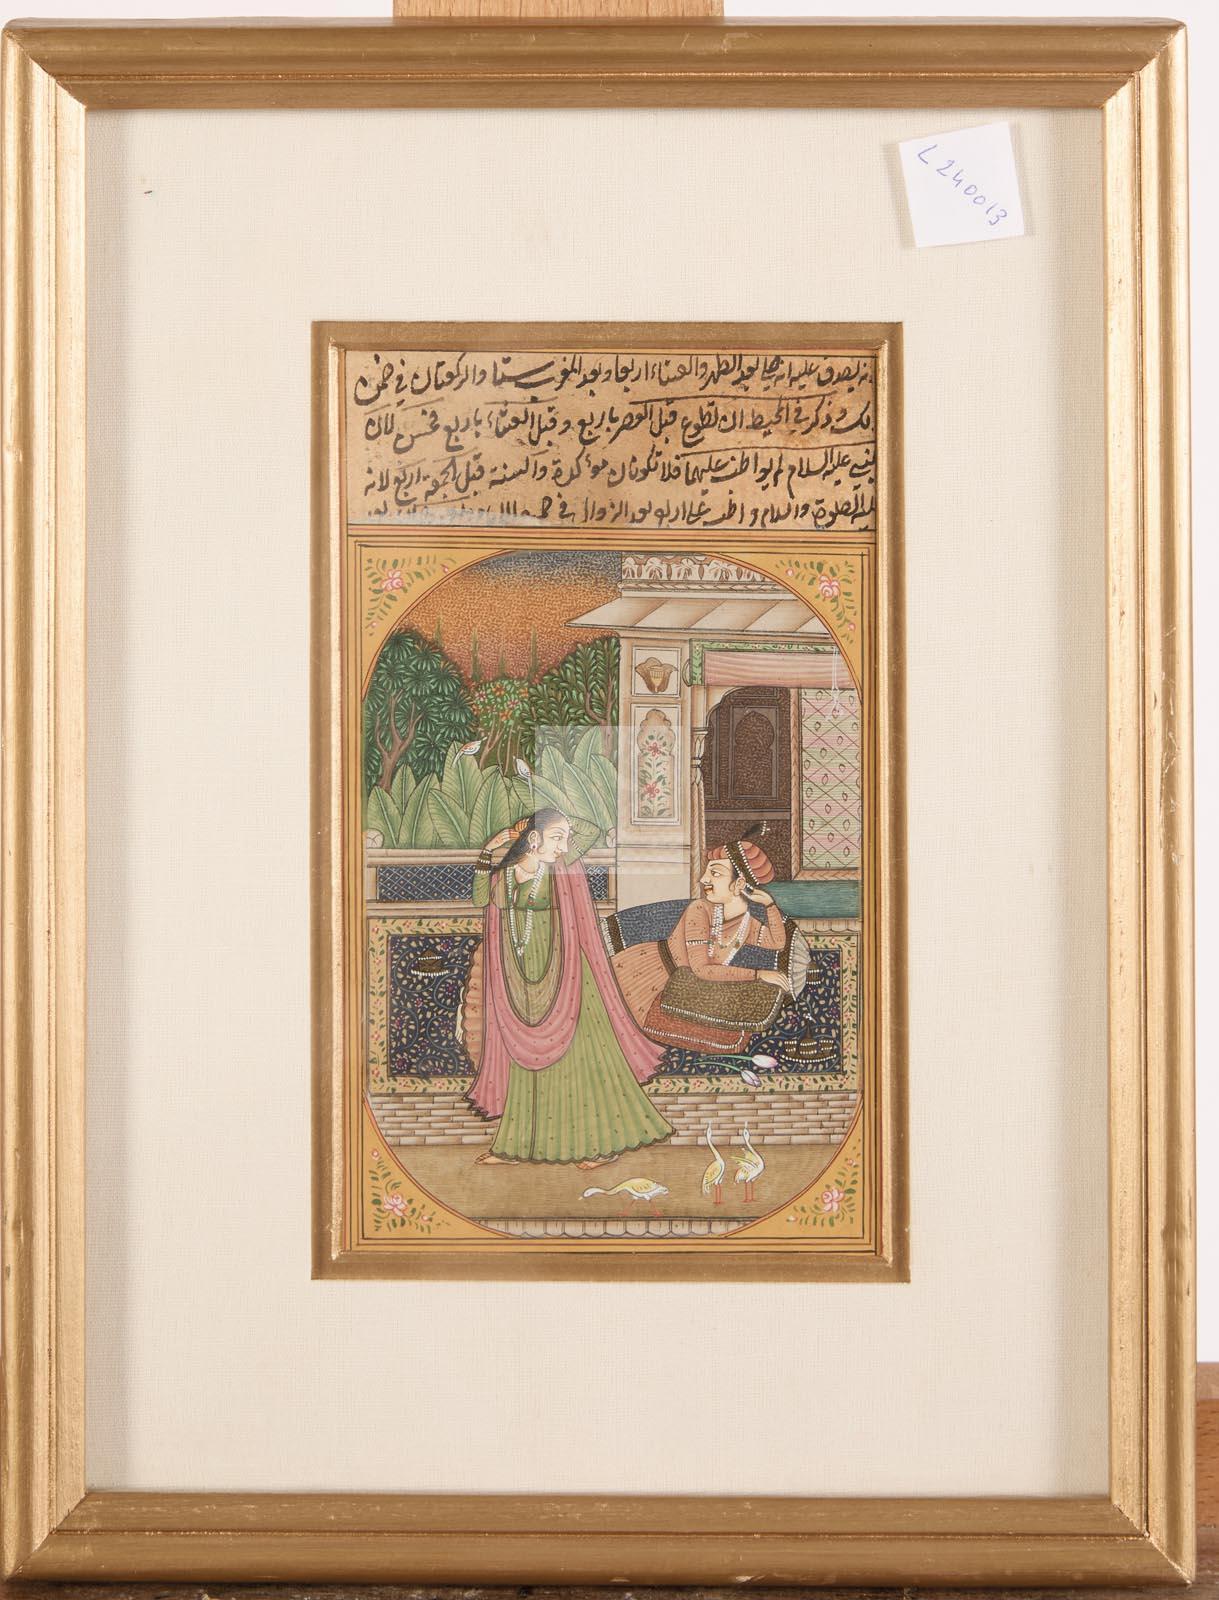 L240013
انه يصدق عليه انه صلى بعد الظهر والعشاء اربعا وبعد المغرب ستا والركعتان في ضمن
ذلك وذكر في المحيط ان تطوع قبل العصر باربع وقبل العشاء باربع فحسن لان
النبي عليه السلام لم يواظب عليهما فلا تكونان مؤكدة والسنة قبل الجمعة اربع لانه
عليه الصلوة والسلام واظب على اربع بعد الزوال في